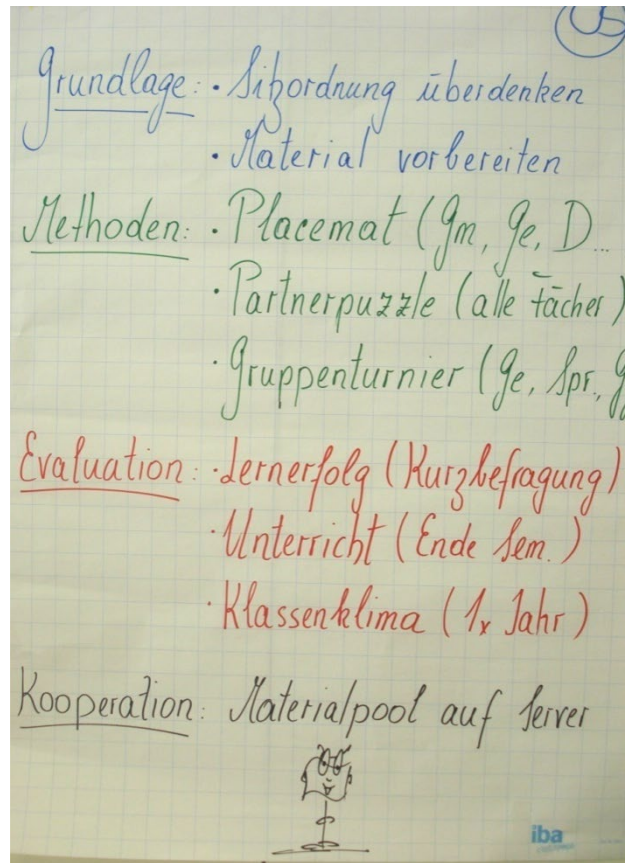 US
Grundlage: · Sitzordnung überdenken
· Material vorbereiten
Methoden: · Placemat (Gm, Ge, D...
· Partnerpuzzle (alle Fächer)
· Gruppenturnier (Ge, Spr, G
Evaluation: · Lernerfolg (Kurzbefragung)
· Unterricht (Ende Sem.)
· Klassenklima (1x Jahr)
Kooperation: Materialpool auf Server
iba